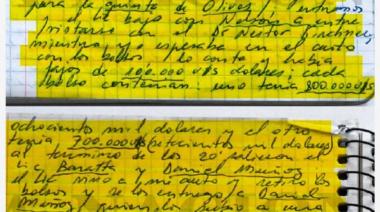 para la quinta de Olivos / entramos
el Lic bajo con Nelson a entre
vistarse con el Dr Nestor Kirchner,
mientras yo esperaba en el auto
con los bolsos / lo conte y habia
fajos de 100.000 U$S dolares; cada
bolso contenian: uno tenia 800.000 U$S
ochocientos mil dolares y el otro
tenia 700.000 U$S setecientos mil dolares
al termino de los 20' salieron el
Baratta y Daniel Muñoz
el Lic vino a mi auto y retiro los
bolsos y se los entrego a Daniel
Muñoz / quien los subio a